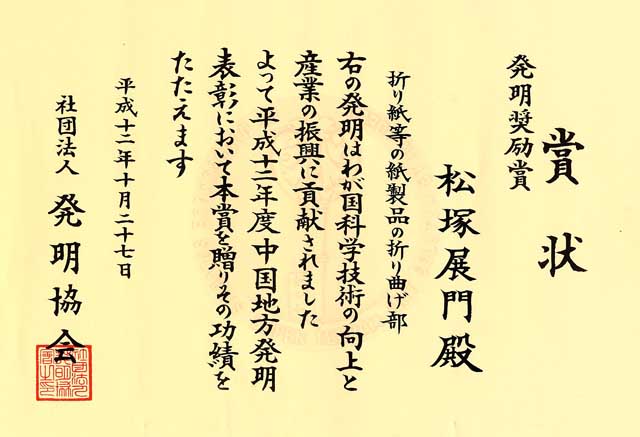 賞状
発明奨励賞
松塚展門殿
折り紙等の紙製品の折り曲げ部
右の発明はわが国科学技術の向上と
産業の振興に貢献されました
よって平成十二年度中国地方発明
表彰において本賞を贈りその功績を
たたえます
平成十二年十月二十七日
社団法人 発明協会